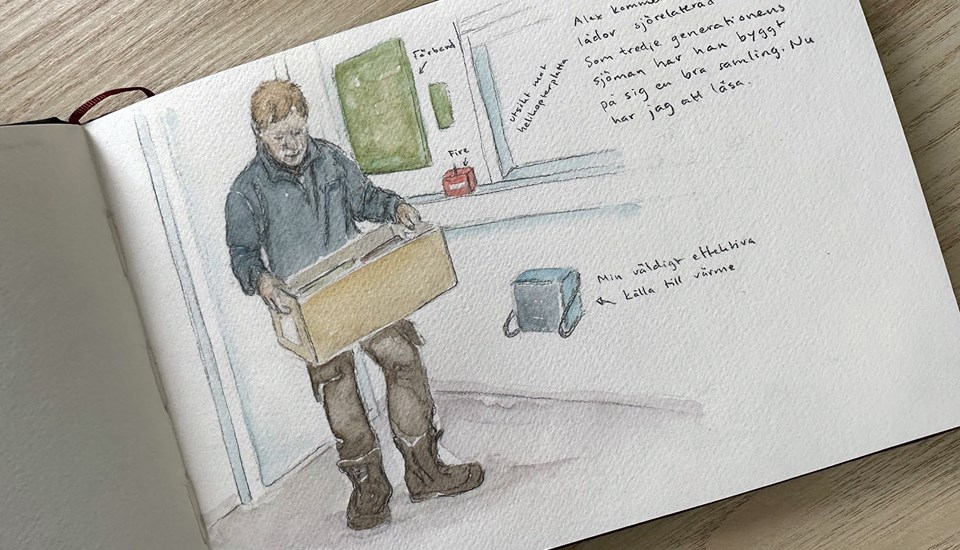 Alex komme
lådor sjörelaterad
Som tredje generationens
sjöman har han byggt
på sig en bra samling. Nu
har jag att läsa.
Förband
utsikt mot
helikopterplatta
Fire
Min väldigt effektiva
källa till värme